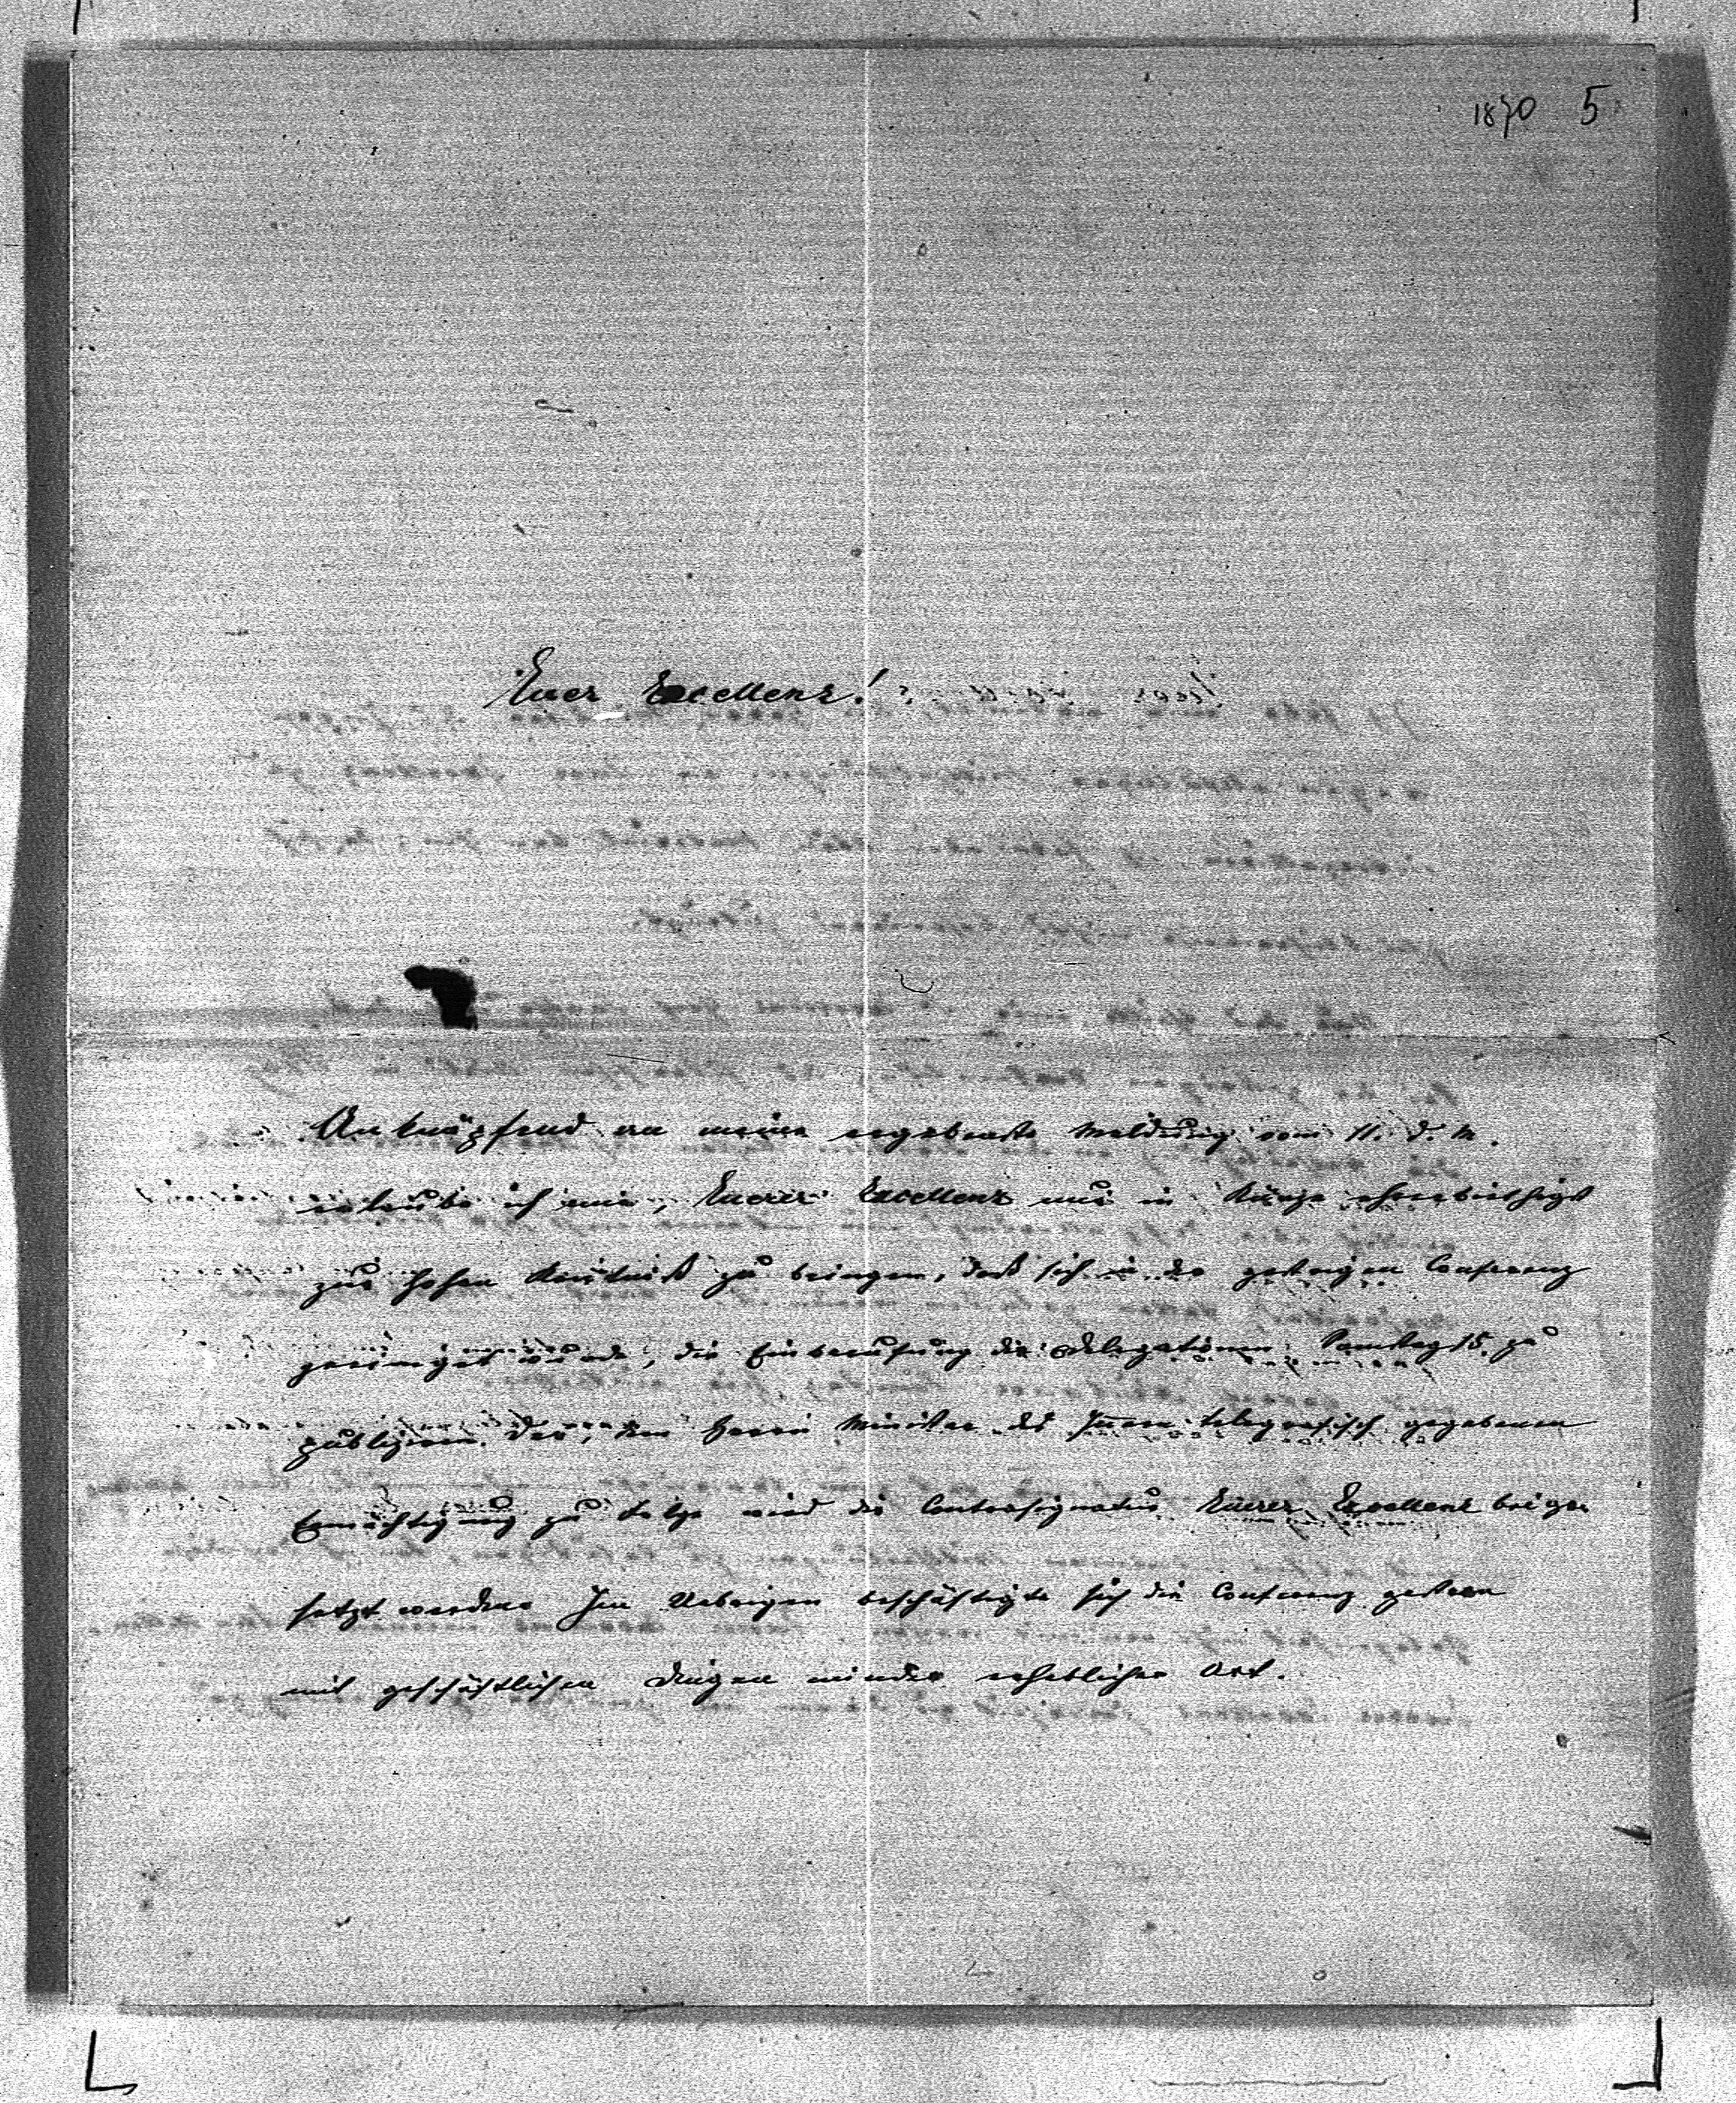 1870 5
Euer Excellenz!
Anknüpfend an meine ergebenste Meldung vom 11. d. M.
erlaube ich mir, Euerer Excellenz nur in Kürze ehrerbiethigst
zur hohen Kentniß zu bringen, daß sich in der gestrigen Conferenz
geeiniget wurde, die Einberufung der Delegationen Samstag 15. zu
publiziren. Der, dem Herrn Minister des Innern telegrafisch gegebenen
Ermächtigung zu Folge wird die Contrasignatur Euerer Excellenz beige-
setzt werden. Im Uebrigen beschäftigte sich die Conferenz gestern
mit geschäftlichen Dingen minder erheblicher Art.